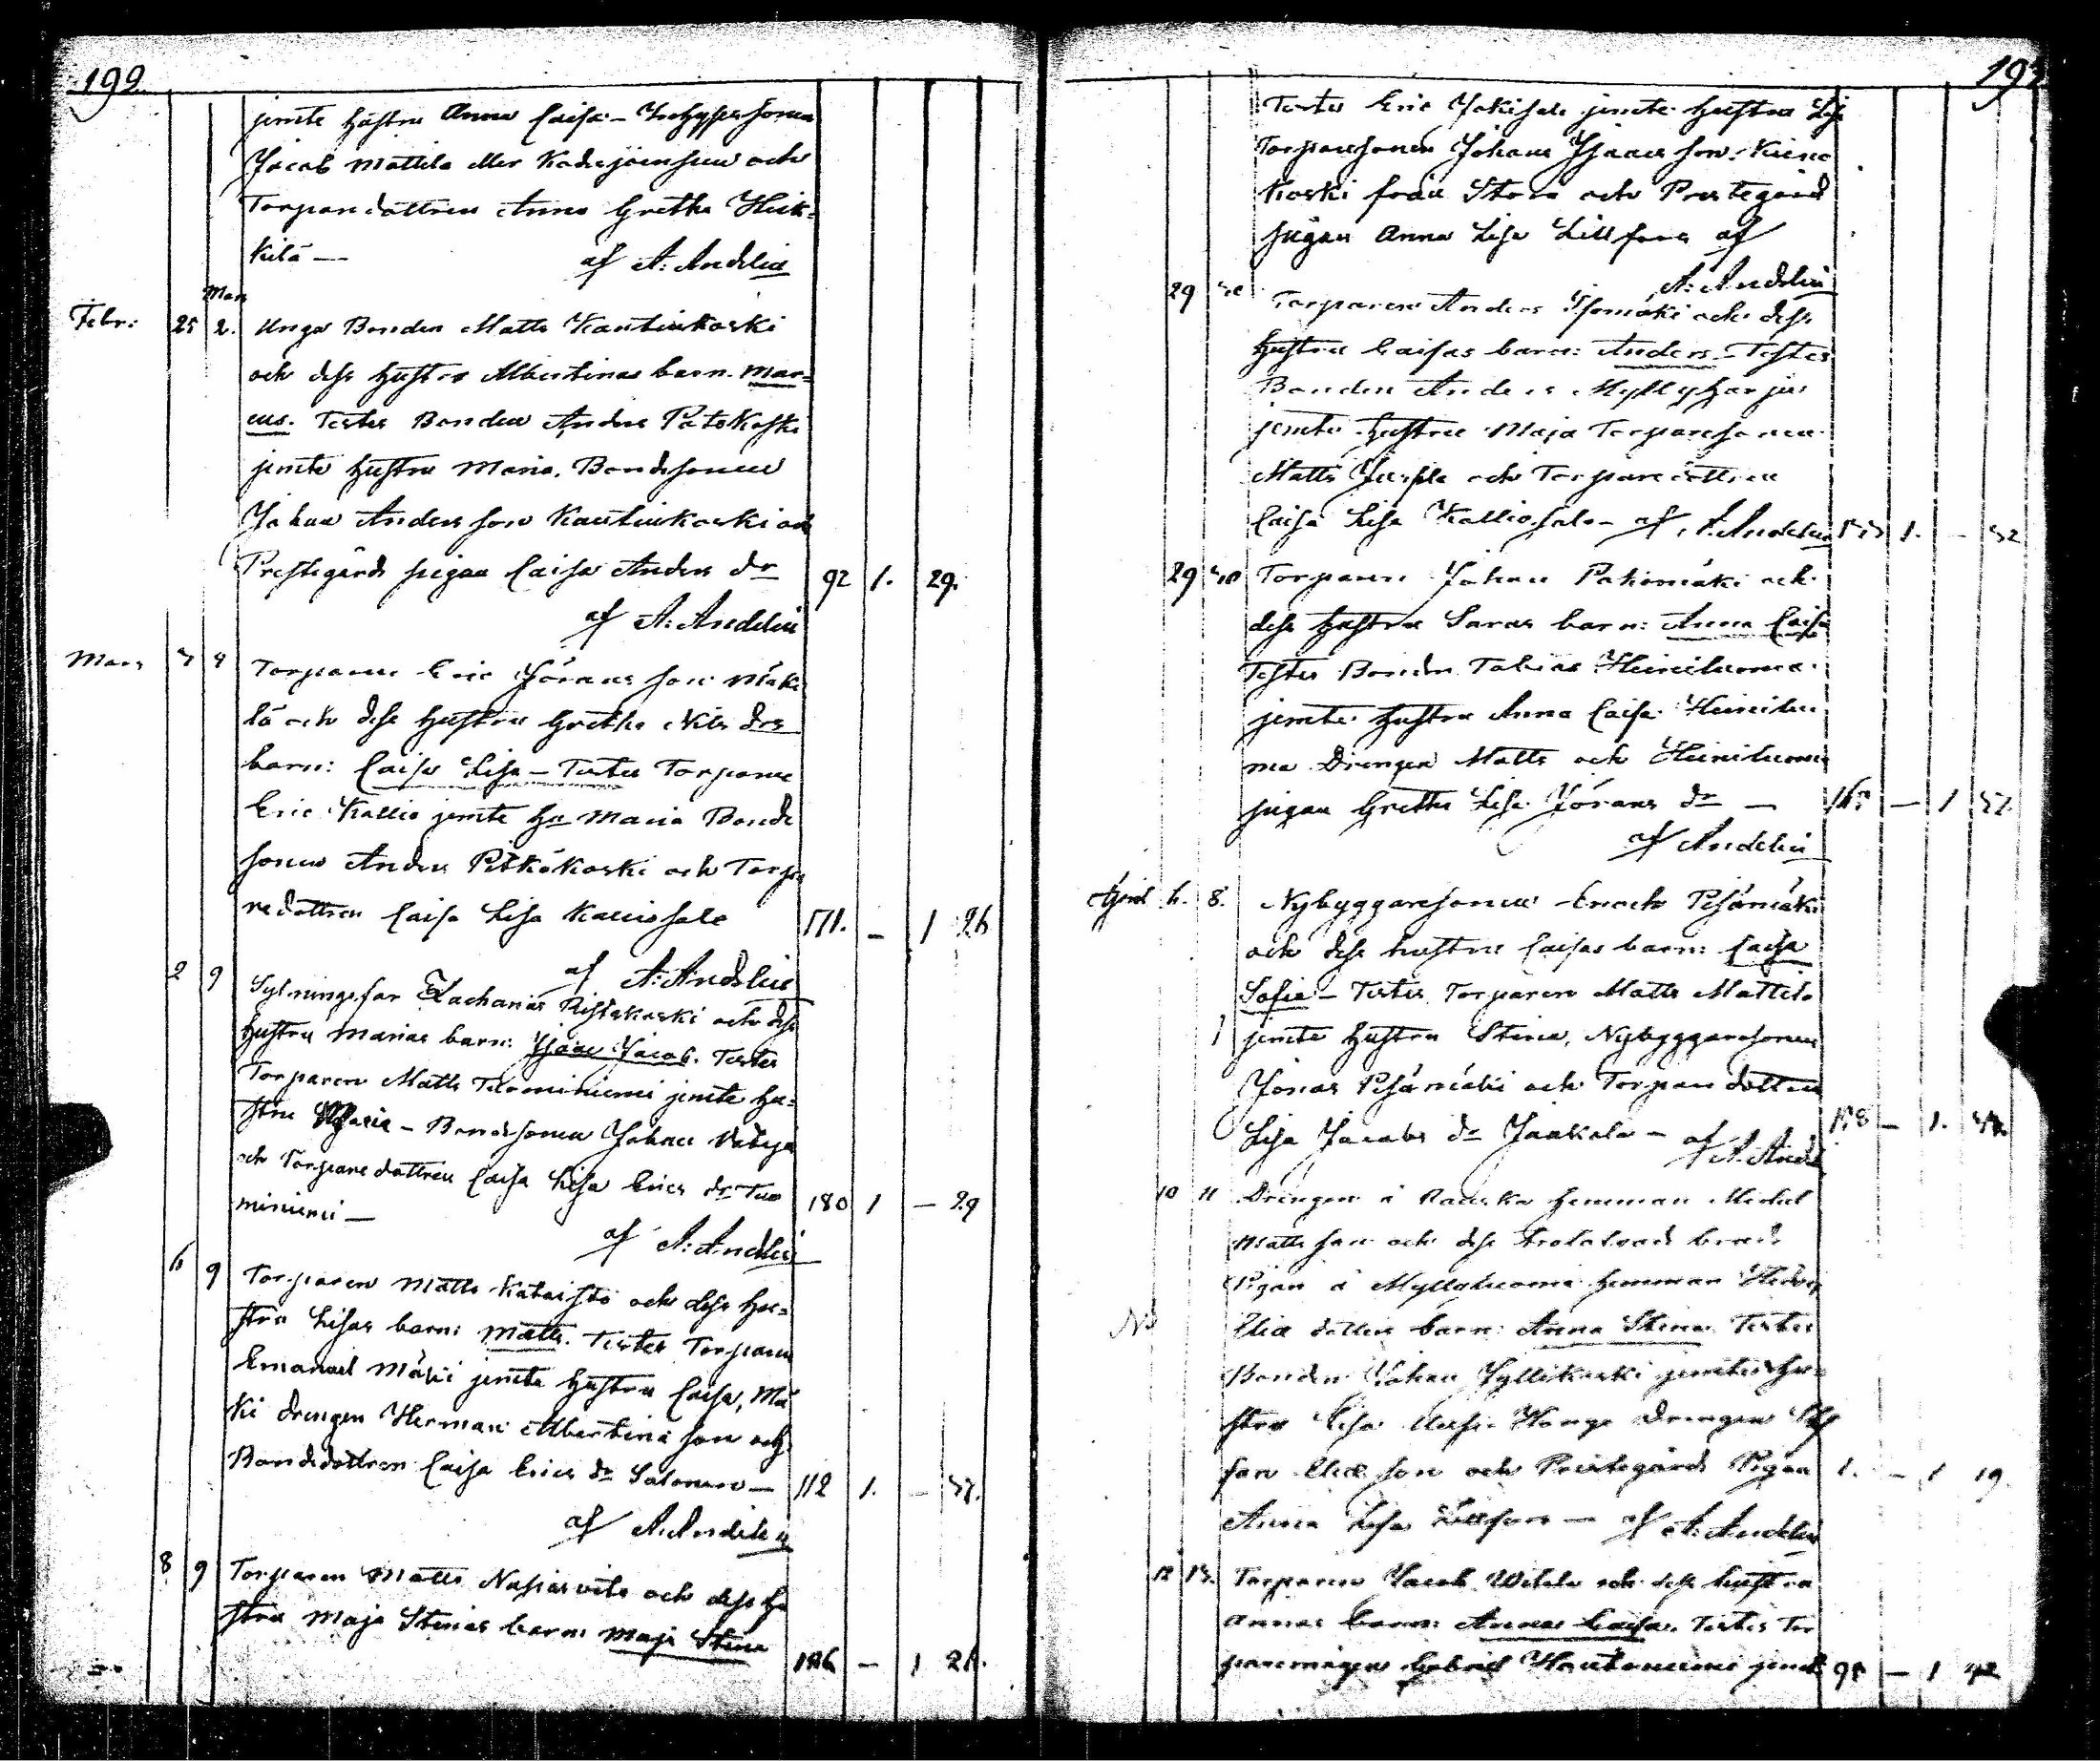 199.
jemte hustru Anna Caisa - Inhyses sonen
Jacob Mattila eller Kadesjoensuu och
Torpare dottren Anna Gretha Heik=
kilä — af A: Andelin
Mars
Febr: 25 2. Unga Bonden Matts Kautiukoski
och dess hustru Albertinas barn. Mar=
cus. Testes Bonden Anders Patokoski
jemte hustru Maria. Bondesonen
Johan Andersson Kautiukoski och
Prestegårds pigan Caisa Anders dr 92 1. 29.
af A: Andelin
Mars 8 Torparen Eric Jörans son Mäki
lä och dess hustru Gretha Nils drs
barn: Caisa Lisa - Testes Torparen
Eric Kallio jemte hu Maria Bonde
sonen Anders Pitkäkoski och Torpa
redottren Caisa Lisa Kalliosalo 171. - 1 26
af A: Andelin
2 9 Sytningsfar Zacharias Ristakoski och dess
hustru Marias barn: Isaac Jacob. Testes
Torparen Matts Tuominiemi jemte hu=
stru Maria - Bondesonen Johan
och Torpare dottren Caisa Lisa Erics dr Tuo
miniemi — 180 1 - 29
af A: Andelin
6 9 Torparen Matts Kataisto och dess hu=
stru Lisas barn: Matts. Testes Torparen
Emanuel Mäki jemte hustru Caisa, Mä
ki drengen Herman Albertina son och
Bondedottren Caisa Erics dr Salonen — 112 1. - 37.
af A: Andelin
8 9 Torparen Matts och dess hu
stru Maja Stinas barn: Maja Stina
186 - 1 21.
197
Testes Eric Jokisalo jemte hustru Lisa
Torparesonen Johan Isaacs son
koski från Storå och Prestegårds
pigan Anna Lisa Lillfors af
A: Andelin
29 30 Torparen Anders Isomäki och dess
hustru Caisas barn: Anders - Testes
Bonden Anders Myllyharju
jemte hustru Maja Torparesonen
Matts och Torparedottren
Caisa Lisa Kalliosalo - af A. Andelin 1. - 32
29 30 Torparen Johan Pahomäki och
dess hustru Saras barn: Anna Caisa
Testes Bonden Tobias Heiniluoma
jemte hustru Anna Caisa Heiniluo
ma Drengen Matts och Heiniluoma
pigan Gretha Lisa Jörans dr — - 1 37.
af Andelin
April 6. 8. Nybyggaresonen Enoch Pesämäki
och dess hustru Caisas barn: Caisa
Sofia - Testes Torparen Matts Mattila
jemte hustru Stina, Nybyggaresonen
Jonas Pesämäki och Torpare dottren
Lisa Jacobs dr Jaakola - af A. Andelin 178 - 1.
10 11 Drengen å Rauska hemman Michel
Matts son och dess trolofvade brud
Pigan å Myllyluoma hemman Hedvig
No Eliæ dotters barn: Anna Stina Testes
Bonden Johan Syllikoski jemte hu=
stru Lisa Kanga Drengen
fan Eliæ son och Prestegårds Pigan 1. - 1 19.
Anna Lisa Lillfors — af A: Andelin
12 13. Torparen Jacob och dess hustru
Annas barn: Anna Caisa. Testes Tor
paremågen Gabriel Hautaniemi jemte 95 - 1 42